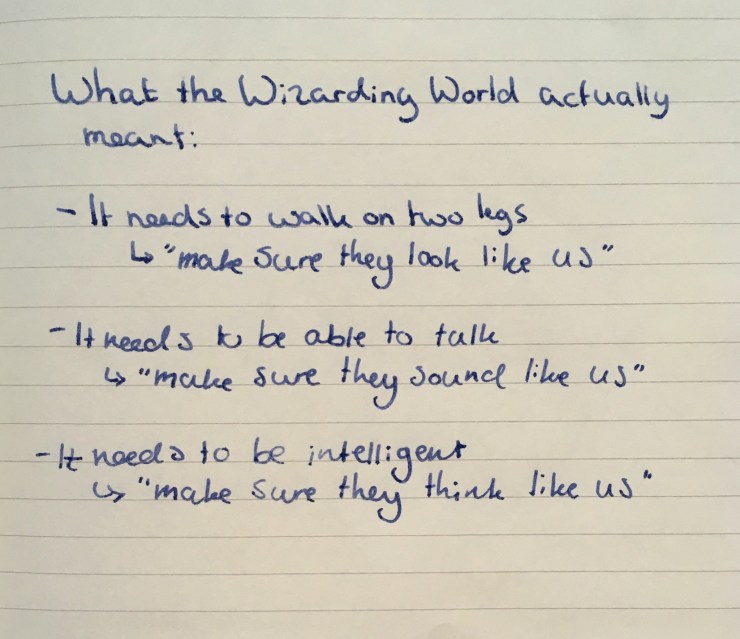 What the Wizarding World actually
meant:
- It needs to walk on two legs
↳ "make sure they look like us"
- It needs to be able to talk
↳ "make sure they sound like us"
- It needs to be intelligent
↳ "make sure they think like us"